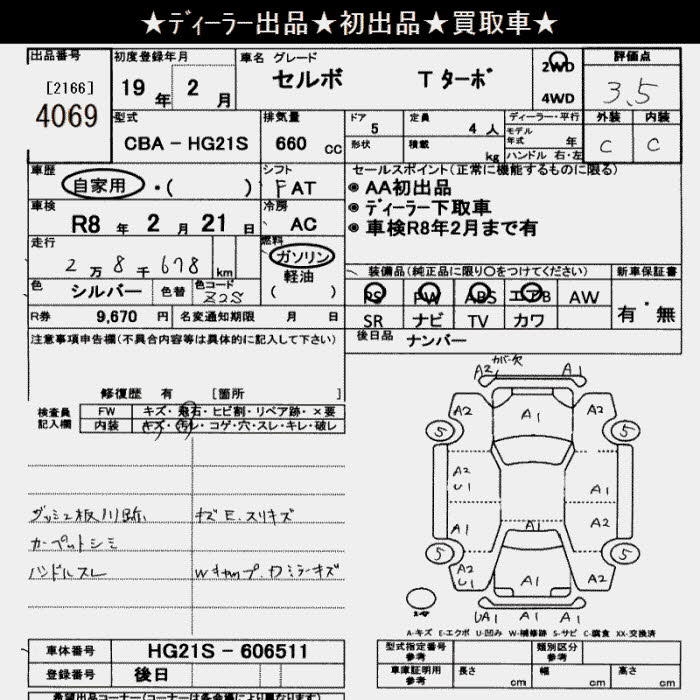 ★ディーラー出品★初出品★買取車★
出品番号 初度登録年月 車名 グレード 評価点
[2166] 19年 2月 セルボ Tターボ 2WD 3.5
4069 4WD
型式 排気量 ドア 定員 ディーラー・平行 外装 内装
CBA - HG21S 660 cc 5 4人 モデル年式 年 C C
形状 積載 kg ハンドル 右・左
車歴 シフト セールスポイント(正常に機能するものに限る)
自家用・( ) F AT ◉ AA初出品
車検 冷房 ◉ ディーラー下取車
R8年 2月 21日 AC ◉ 車検R8年2月まで有
走行 燃料
2万8千678 km ガソリン
軽油 装備品(純正品に限り○をつけてください) 新車保証書
色 シルバー 色替 色コード Z2S ( ) PS PW ABS エアB AW 有・無
R券 9,670 円 名変通知期限 月 日 SR ナビ TV カワ
注意事項申告欄(不具合内容等は具体的に記入して下さい) 後日品 ナンバー
修復歴 有 [箇所 ]
検査員 FW キズ・飛石・ヒビ割・リペア跡・×要
記入欄 内装 キズ・汚レ・コゲ・穴・スレ・キレ・破レ
カバー欠
A2 A1
A2 A1 A2
5 5
A2 U1 A1
A1 A1 A2
5 5
A2 U1 A1 A2
UA1 A1
キズ E.スリキズ
カーペットシミ
ハンドルスレ
A-キズ E-エクボ U-凹み W-補修跡 S-サビ C-腐食 XX-交換済
車体番号 HG21S - 606511 型式指定番号 参考 類別区分 参考
登録番号 後日 車庫証明用 参考 長さ cm 幅 cm 高さ cm
希望出品コーナー(コーナーは条会場により異なります)